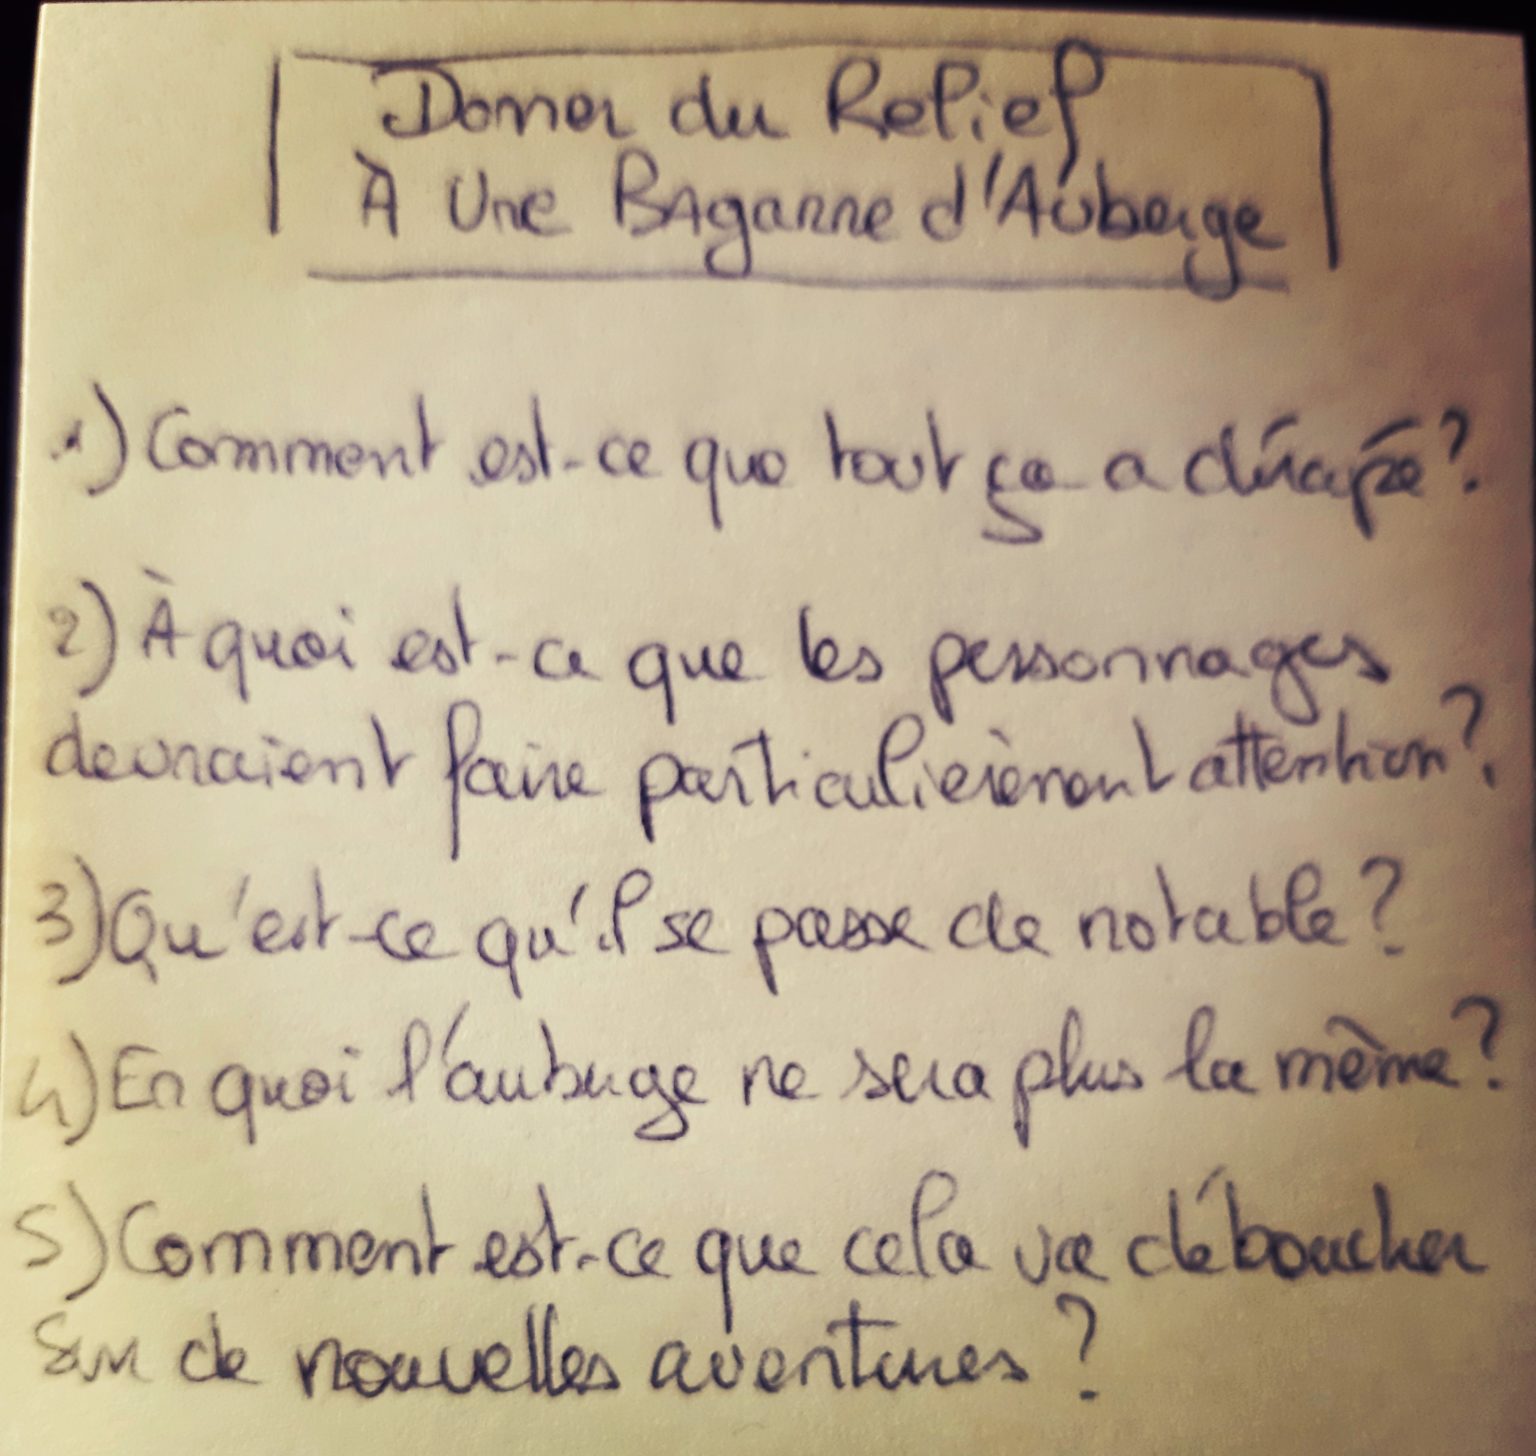 Donner du Relief
À Une BAgarre d'Auberge
1) Comment est-ce que tout ça a dérapé?
2) À quoi est-ce que les personnages
devraient faire particulièrement attention?
3) Qu'est-ce qu'il se passe de notable?
4) En quoi l'auberge ne sera plus la même?
5) Comment est-ce que cela va déboucher
sur de nouvelles aventures?